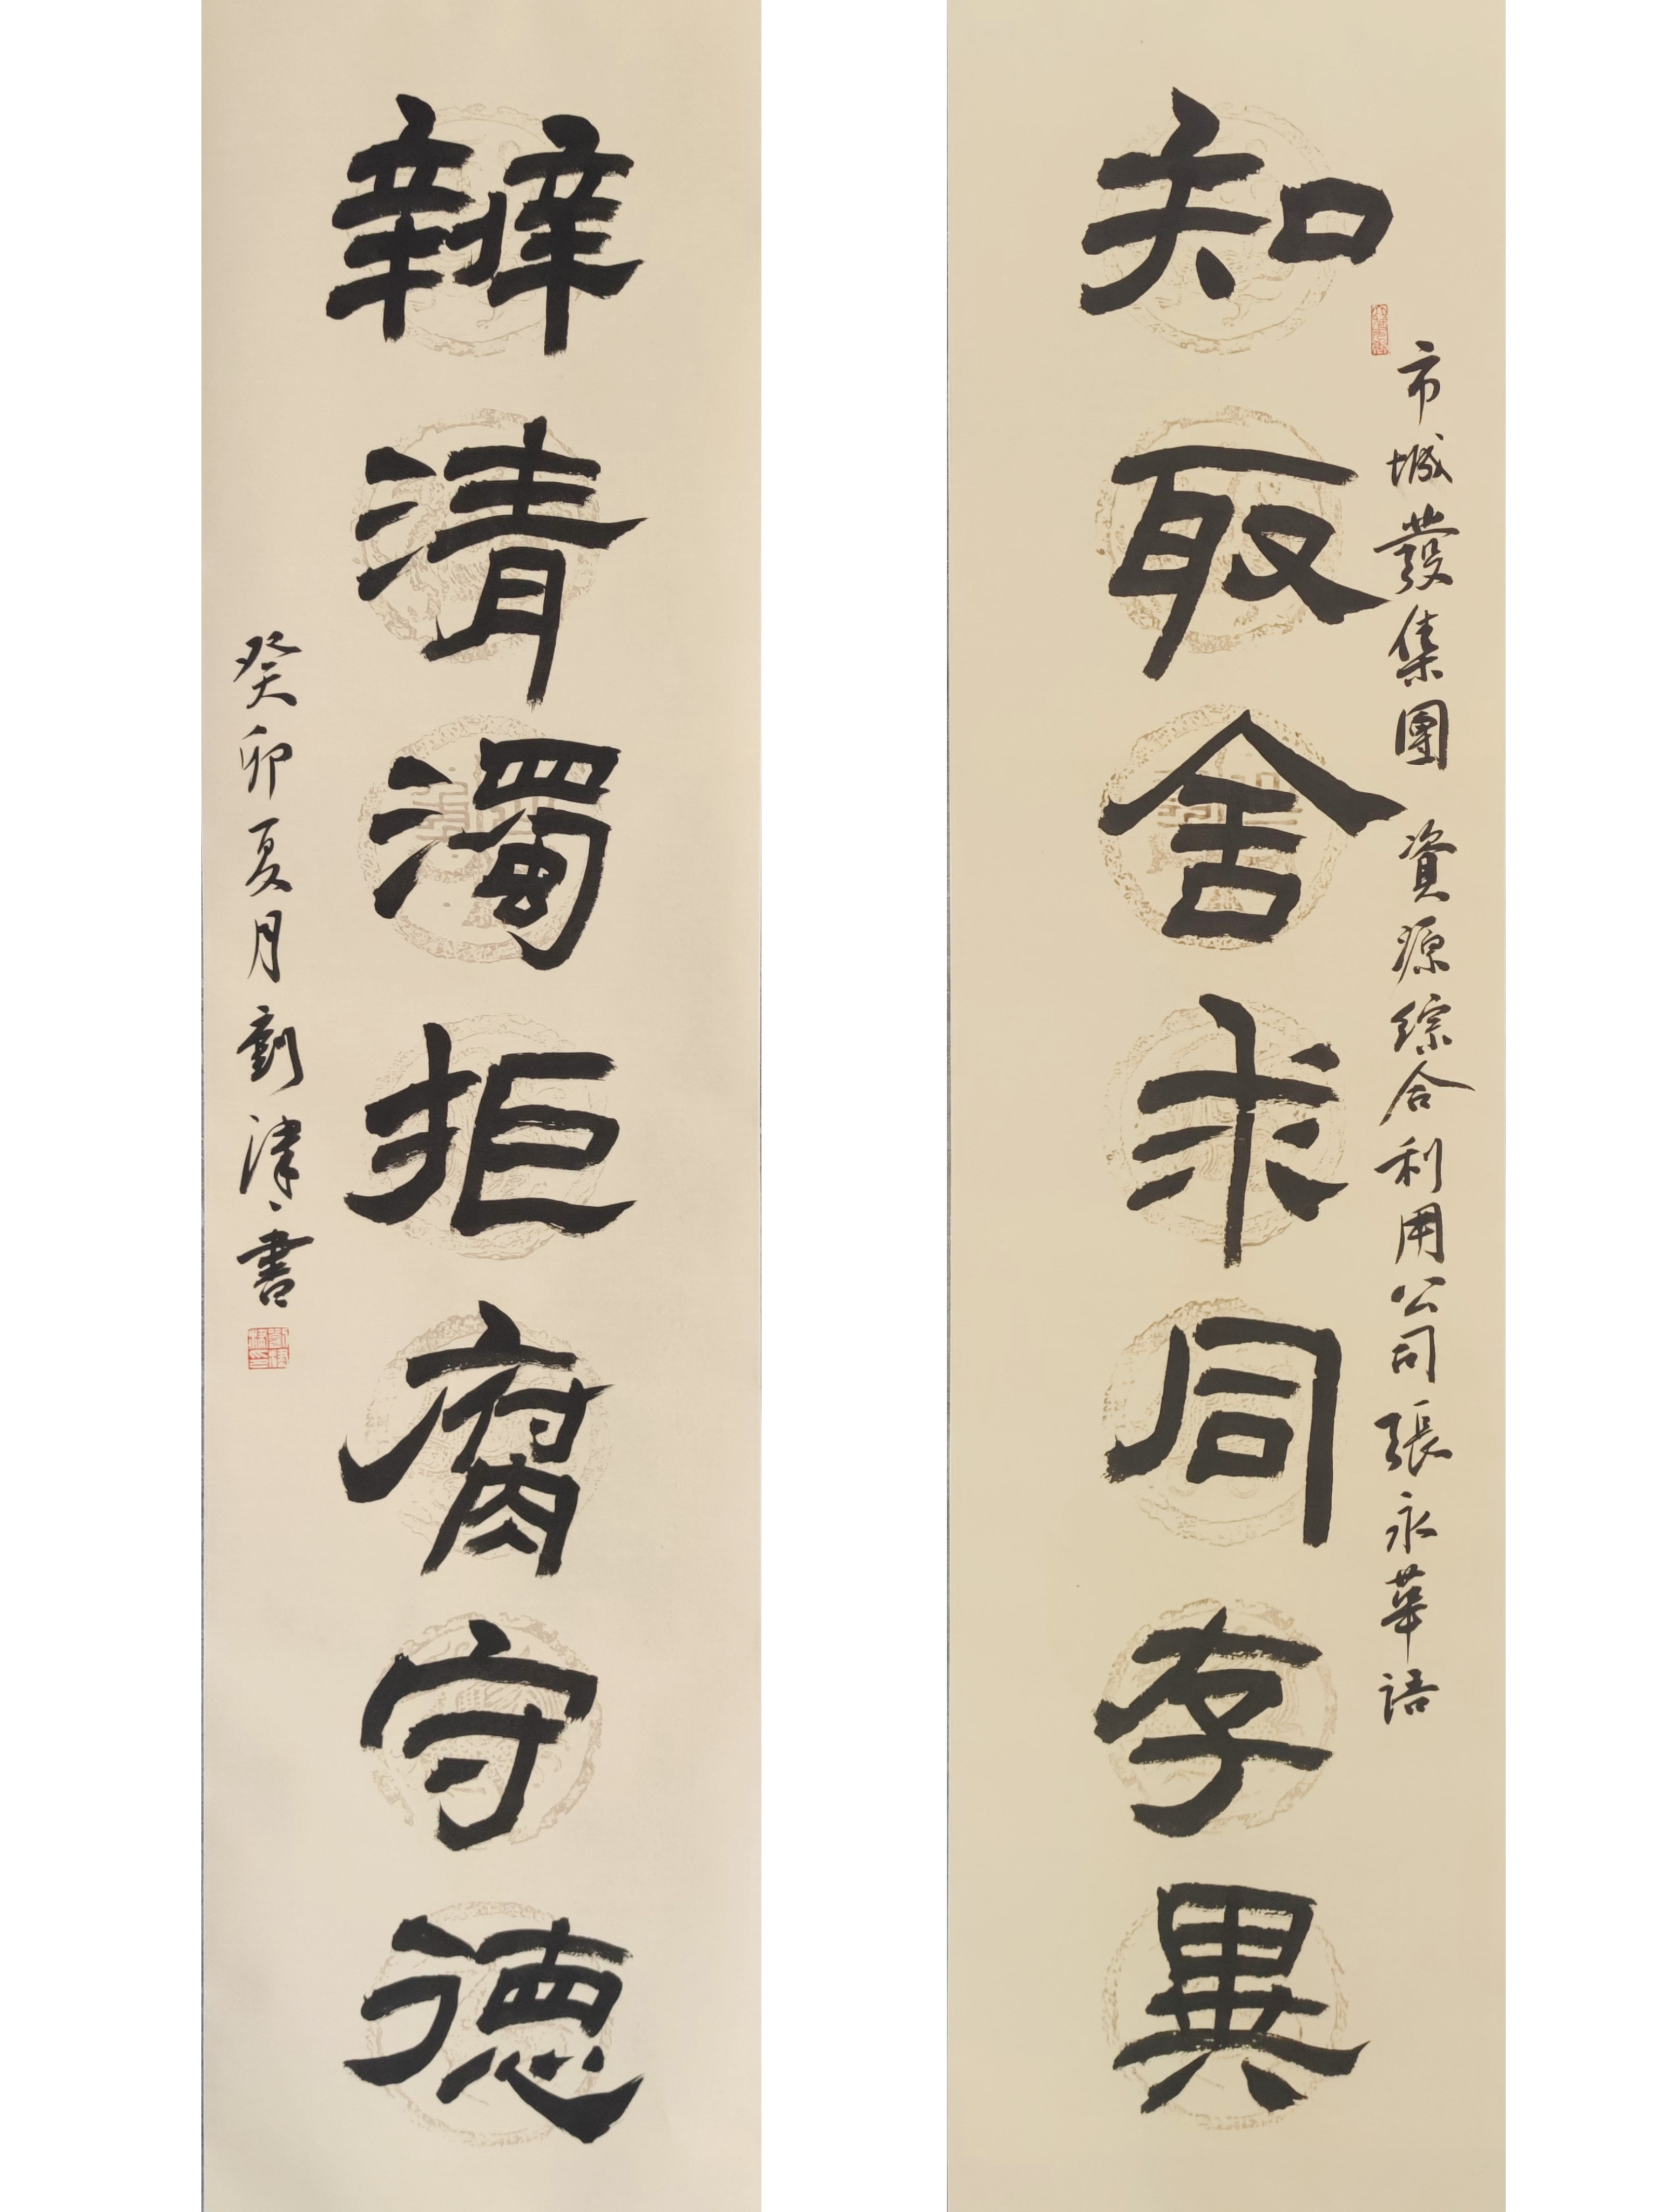 知取舍求同存異
市城發集團 資源综合利用公司張永華语
辨清濁拒腐守德
癸卯夏月劉津书